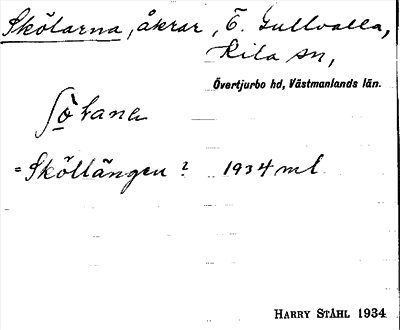 Skölarna, åkrar, T. Gullvalla,
Kila sn,
Övertjurbo hd, Västmanlands län.
= Skölängen? 1934 ml
HARRY STÅHL 1934